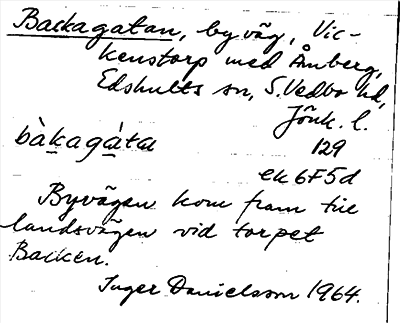 Backagatan, byväg, Vic-
kenstorp med Åmberg,
Edshults sn, S. Vedbo hd,
Jönk. l.
bàkagàtaɪ 129
ek 6F5d
Byvägen kom fram till
landsvägen vid torpet
Backen.
Inger Danielsson 1964.